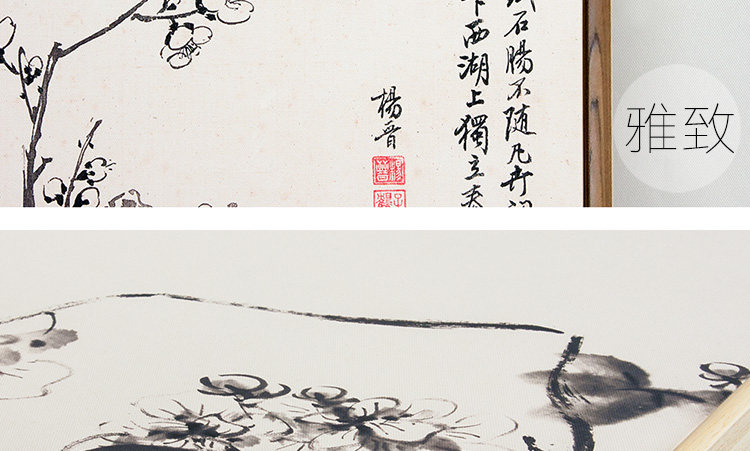 石腸不隨凡卉
西湖上獨立
楊晉
雅致